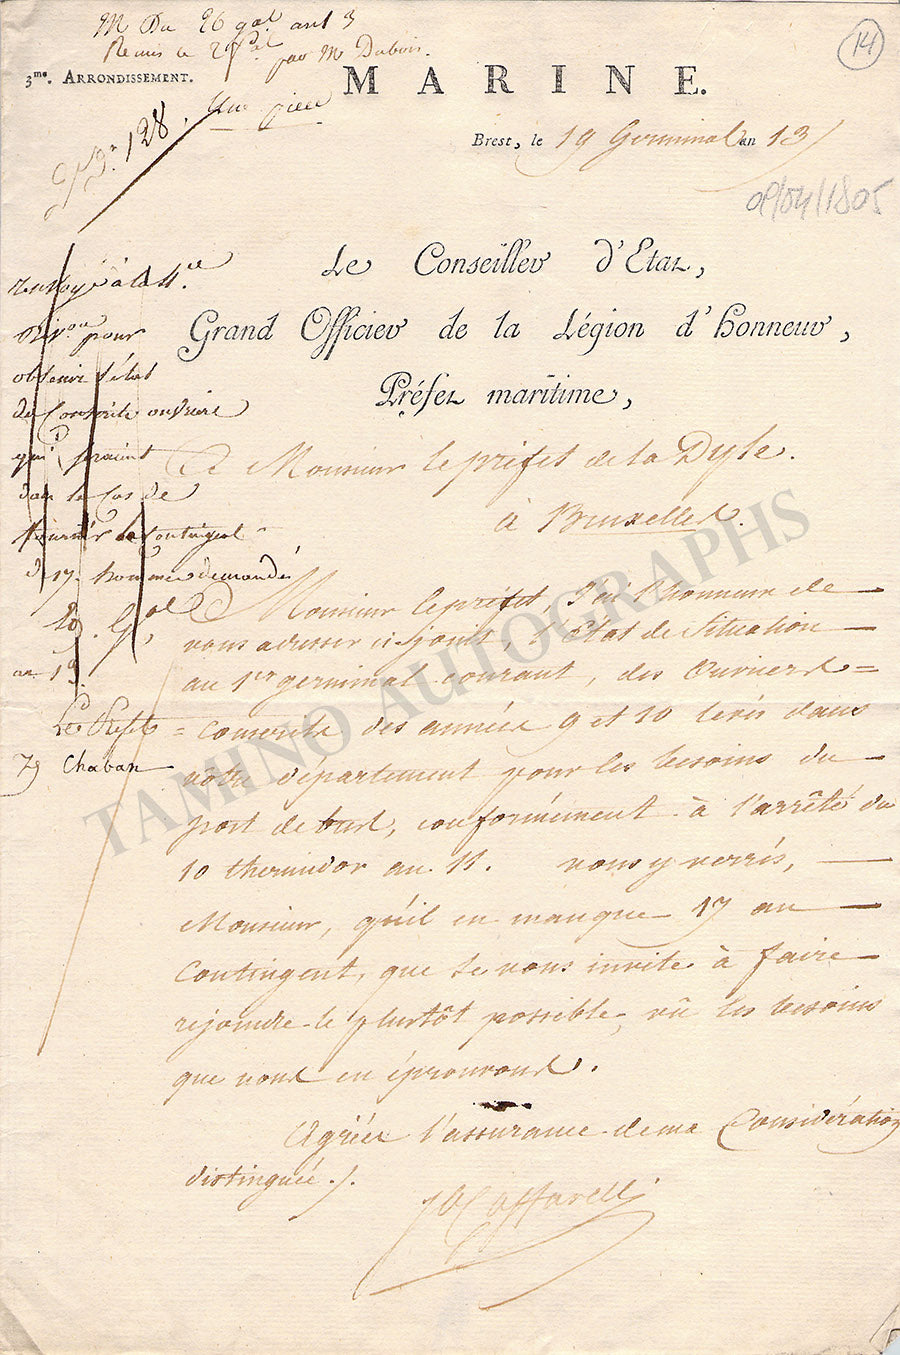 M Du 26 gal an 13
Remis le 29 gal par Mr Dubois.
14
3me. ARRONDISSEMENT.
MARINE.
Don 128. Une pièce
Brest, le 19 Germinal an 13
09/04/1805
Le Conseiller d'Etat,
Grand Officier de la Légion d'honneur,
Préfet maritime,
A Monsieur le préfet de la Dyle.
à Bruxelles.
Renvoyé à la 4.e
Divon pour
obtenir l'état
de Conscrits ouvriers
qui seraient
dans le Cas de
fournir le Contingent
de 17 hommes demandés
29 Gal
an 13
Le Préfet
Chaban
Monsieur le préfet, J'ai l'honneur de
vous adresser ci-joint, l'Etat de Situation
au 1er germinal courant, des Ouvriers
Conscrits des années 9 et 10 levés dans
votre département pour les besoins du
port de brest, conformément à l'arrêté du
10 thermidor an 11. vous y verrés,
Monsieur, qu'il en manque 17 au
Contingent, que Je vous invite à faire
rejoindre le plustôt possible, vû les besoins
que nous en éprouvons.
Agréez l'assurance de ma Considération
distinguée.
Caffarelli
TAMINO AUTOGRAPHS